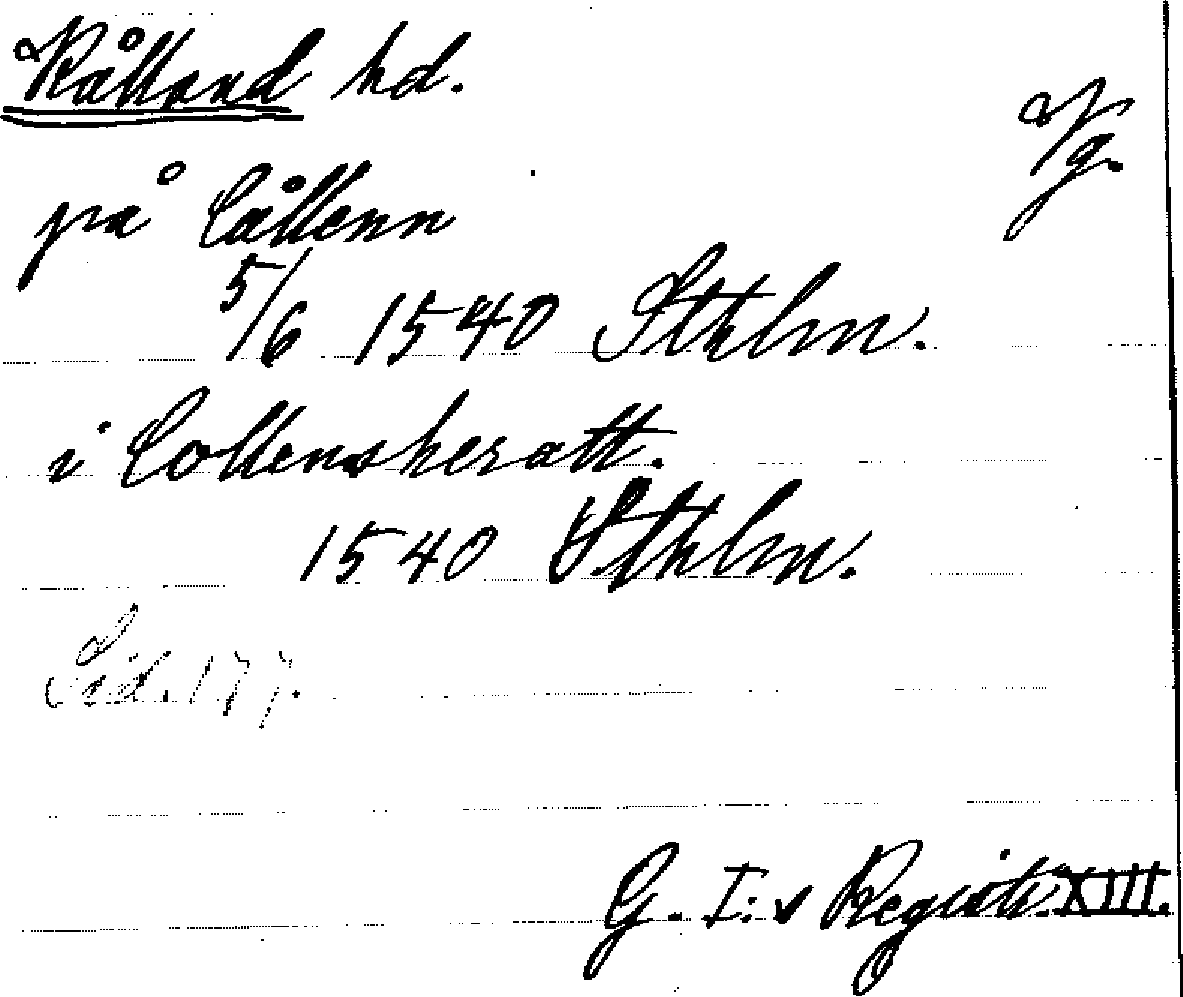 Kålland hd.
Vg.
på Cållenn
5/6 1540 Sthlm.
i Collensheratt.
1540 Sthlm.
Sid. 177.
G. I: s Registr. XIII.